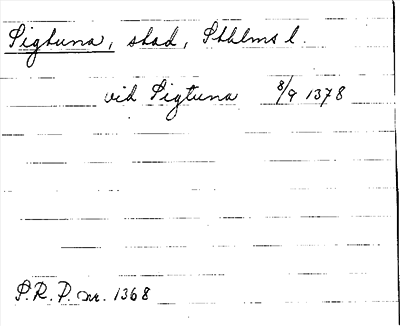 Sigtuna, stad, Sthlms l.
vid Sigtuna 8/9 1378
P.R.P. nr. 1368